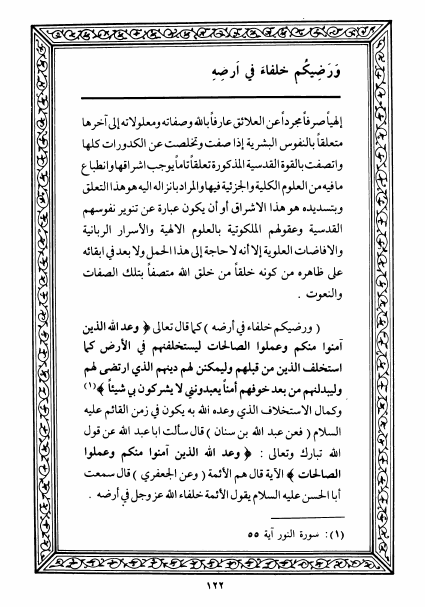 وَرَضِيكُم خلفاءَ في اَرضِهِ
إلهياً صرفاً مجرداً عن العلائق عارفاً بالله وصفاته ومعلولاته إلى آخرها
متعلقاً بالنفوس البشرية إذا صفت وتخلصت عن الكدورات كلها
واتصفت بالقوة القدسية المذكورة تعلقاً تاماً يوجب اشراقها وانطباع
ما فيه من العلوم الكلية والجزئية فيها والمراد بانزاله اليه هو هذا التعلق
وبتسديده هو هذا الاشراق أو أن يكون عبارة عن تنوير نفوسهم
القدسية وعقولهم الملكوتية بالعلوم الالهية والأسرار الربانية
والافاضات العلوية إلا أنه لا حاجة إلى هذا الحمل ولا بعد في ابقائه
على ظاهره من كونه خلقاً من خلق الله متصفاً بتلك الصفات
والنعوت .
( ورضيكم خلفاء في أرضه ) كما قال تعالى ﴿ وعد الله الذين
آمنوا منكم وعملوا الصالحات ليستخلفنهم في الأرض كما
استخلف الذين من قبلهم وليمكنن لهم دينهم الذي ارتضى لهم
وليبدلنهم من بعد خوفهم أمناً يعبدونني لا يشركون بي شيئاً ﴾(١)
وكمال الاستخلاف الذي وعده الله به يكون في زمن القائم عليه
السلام ( فعن عبد الله بن سنان ) قال سألت ابا عبد الله عن قول
الله تبارك وتعالى : ﴿ وعد الله الذين آمنوا منكم وعملوا
الصالحات ﴾ الآية قال هم الأئمة ( وعن الجعفري ) قال سمعت
أبا الحسن عليه السلام يقول الأئمة خلفاء الله عز وجل في أرضه .
(١): سورة النور آية ٥٥
١٢٢